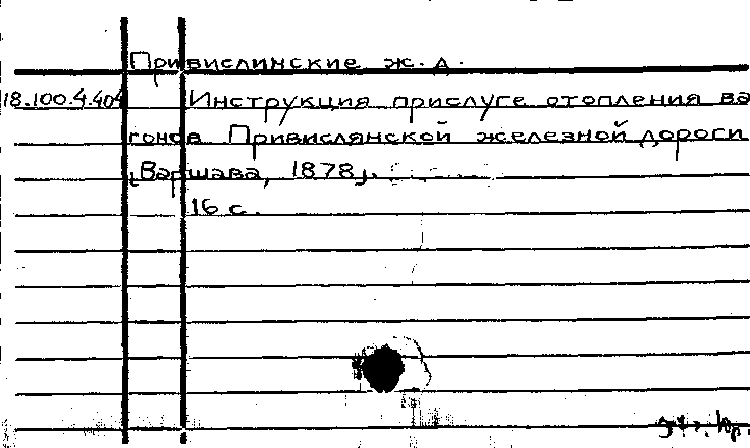 Привислинские ж. д.
18.100.4.404 Инструкция прислуге отопления ва
гонов Привислянской железной дороги
[Варшава, 1878].
16 с.